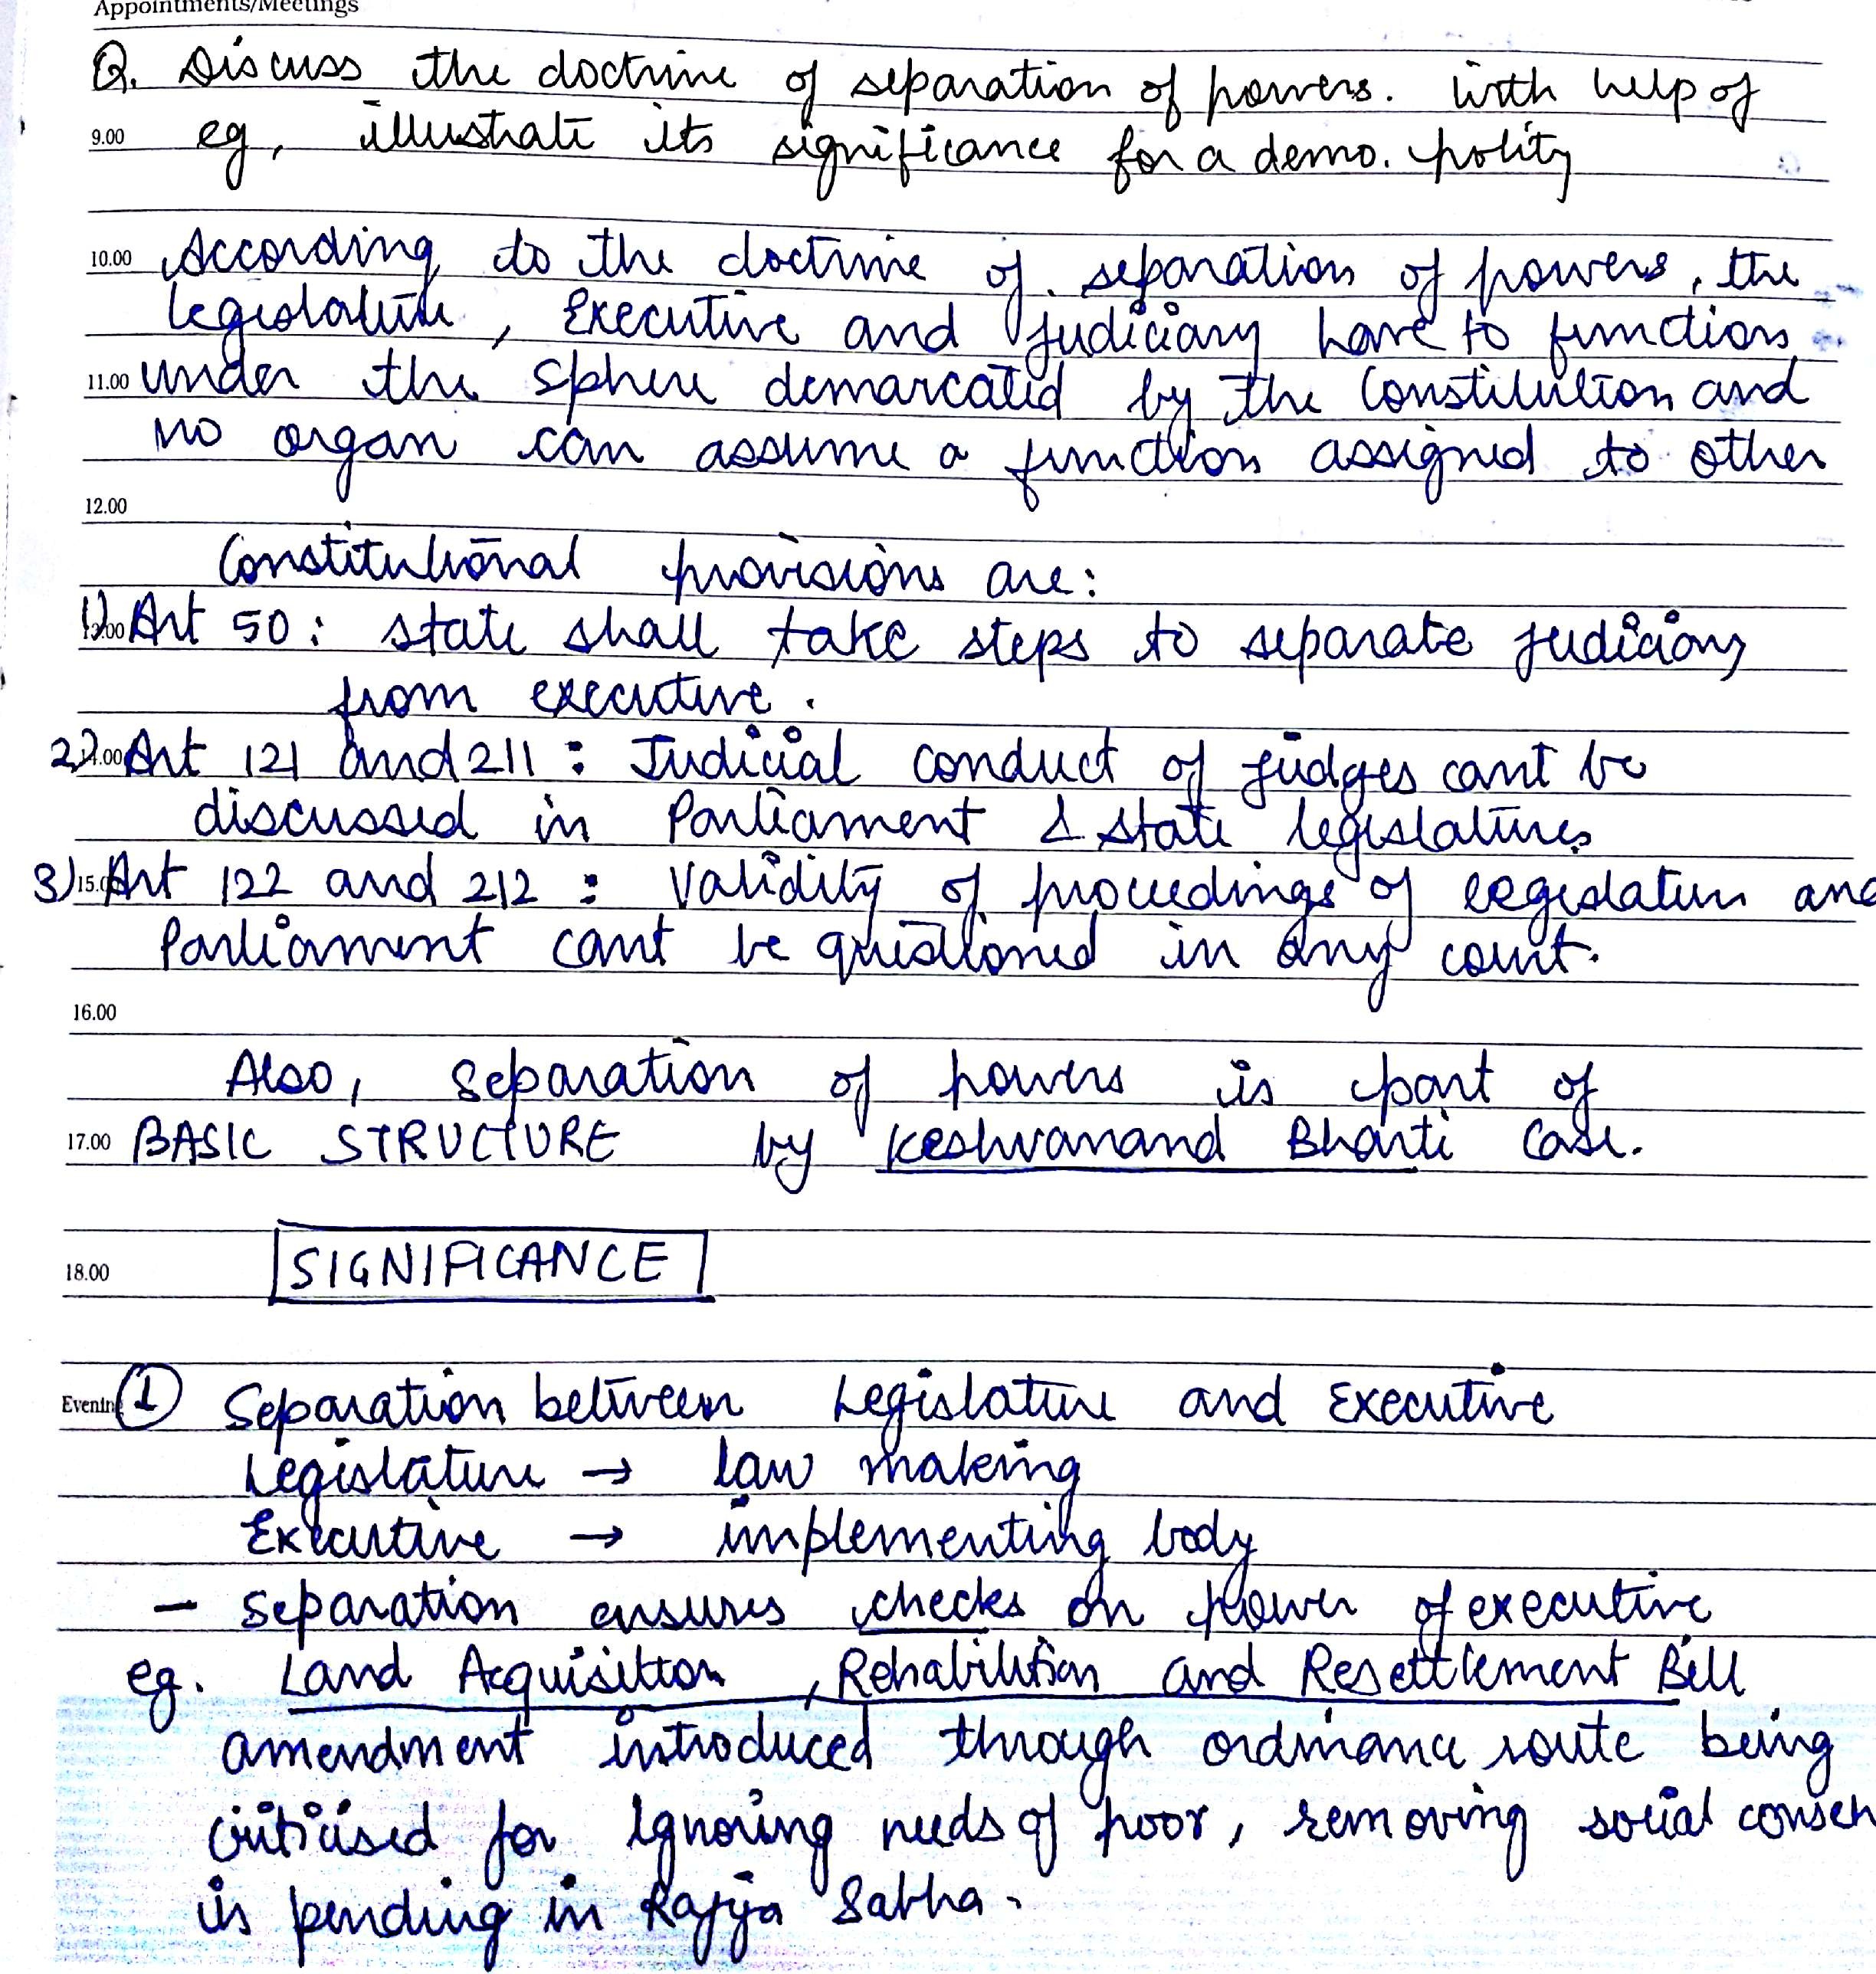 Appointments/Meetings
Q. Discuss the doctrine of separation of powers. With help of
9.00 eg, illustrate its significance for a demo. polity
10.00 According to the doctrine of separation of powers, the
legislature, Executive and Judiciary have to function
11.00 under the sphere demarcated by the Constitution and
no organ can assume a function assigned to other
12.00
Constitutional provisions are:
1) Art 50: state shall take steps to separate judiciary
from executive.
2) Art 121 and 211: Judicial conduct of judges cant be
discussed in Parliament & state legislatures
3) 15.00 Art 122 and 212: Validity of proceedings of legislature and
Parliament cant be questioned in any court.
16.00
Also, separation of powers is part of
17.00 BASIC STRUCTURE by Keshwanand Bharti Case.
SIGNIFICANCE
18.00
Evening 1 Separation between Legislature and Executive
Legislature → law making
Executive → implementing body
- Separation ensures checks on power of executive
eg. Land Acquisition, Rehabilition and Resettlement Bill
amendment introduced through ordinance route being
criticised for Ignoring needs of poor, removing social consen
is pending in Rajya Sabha.